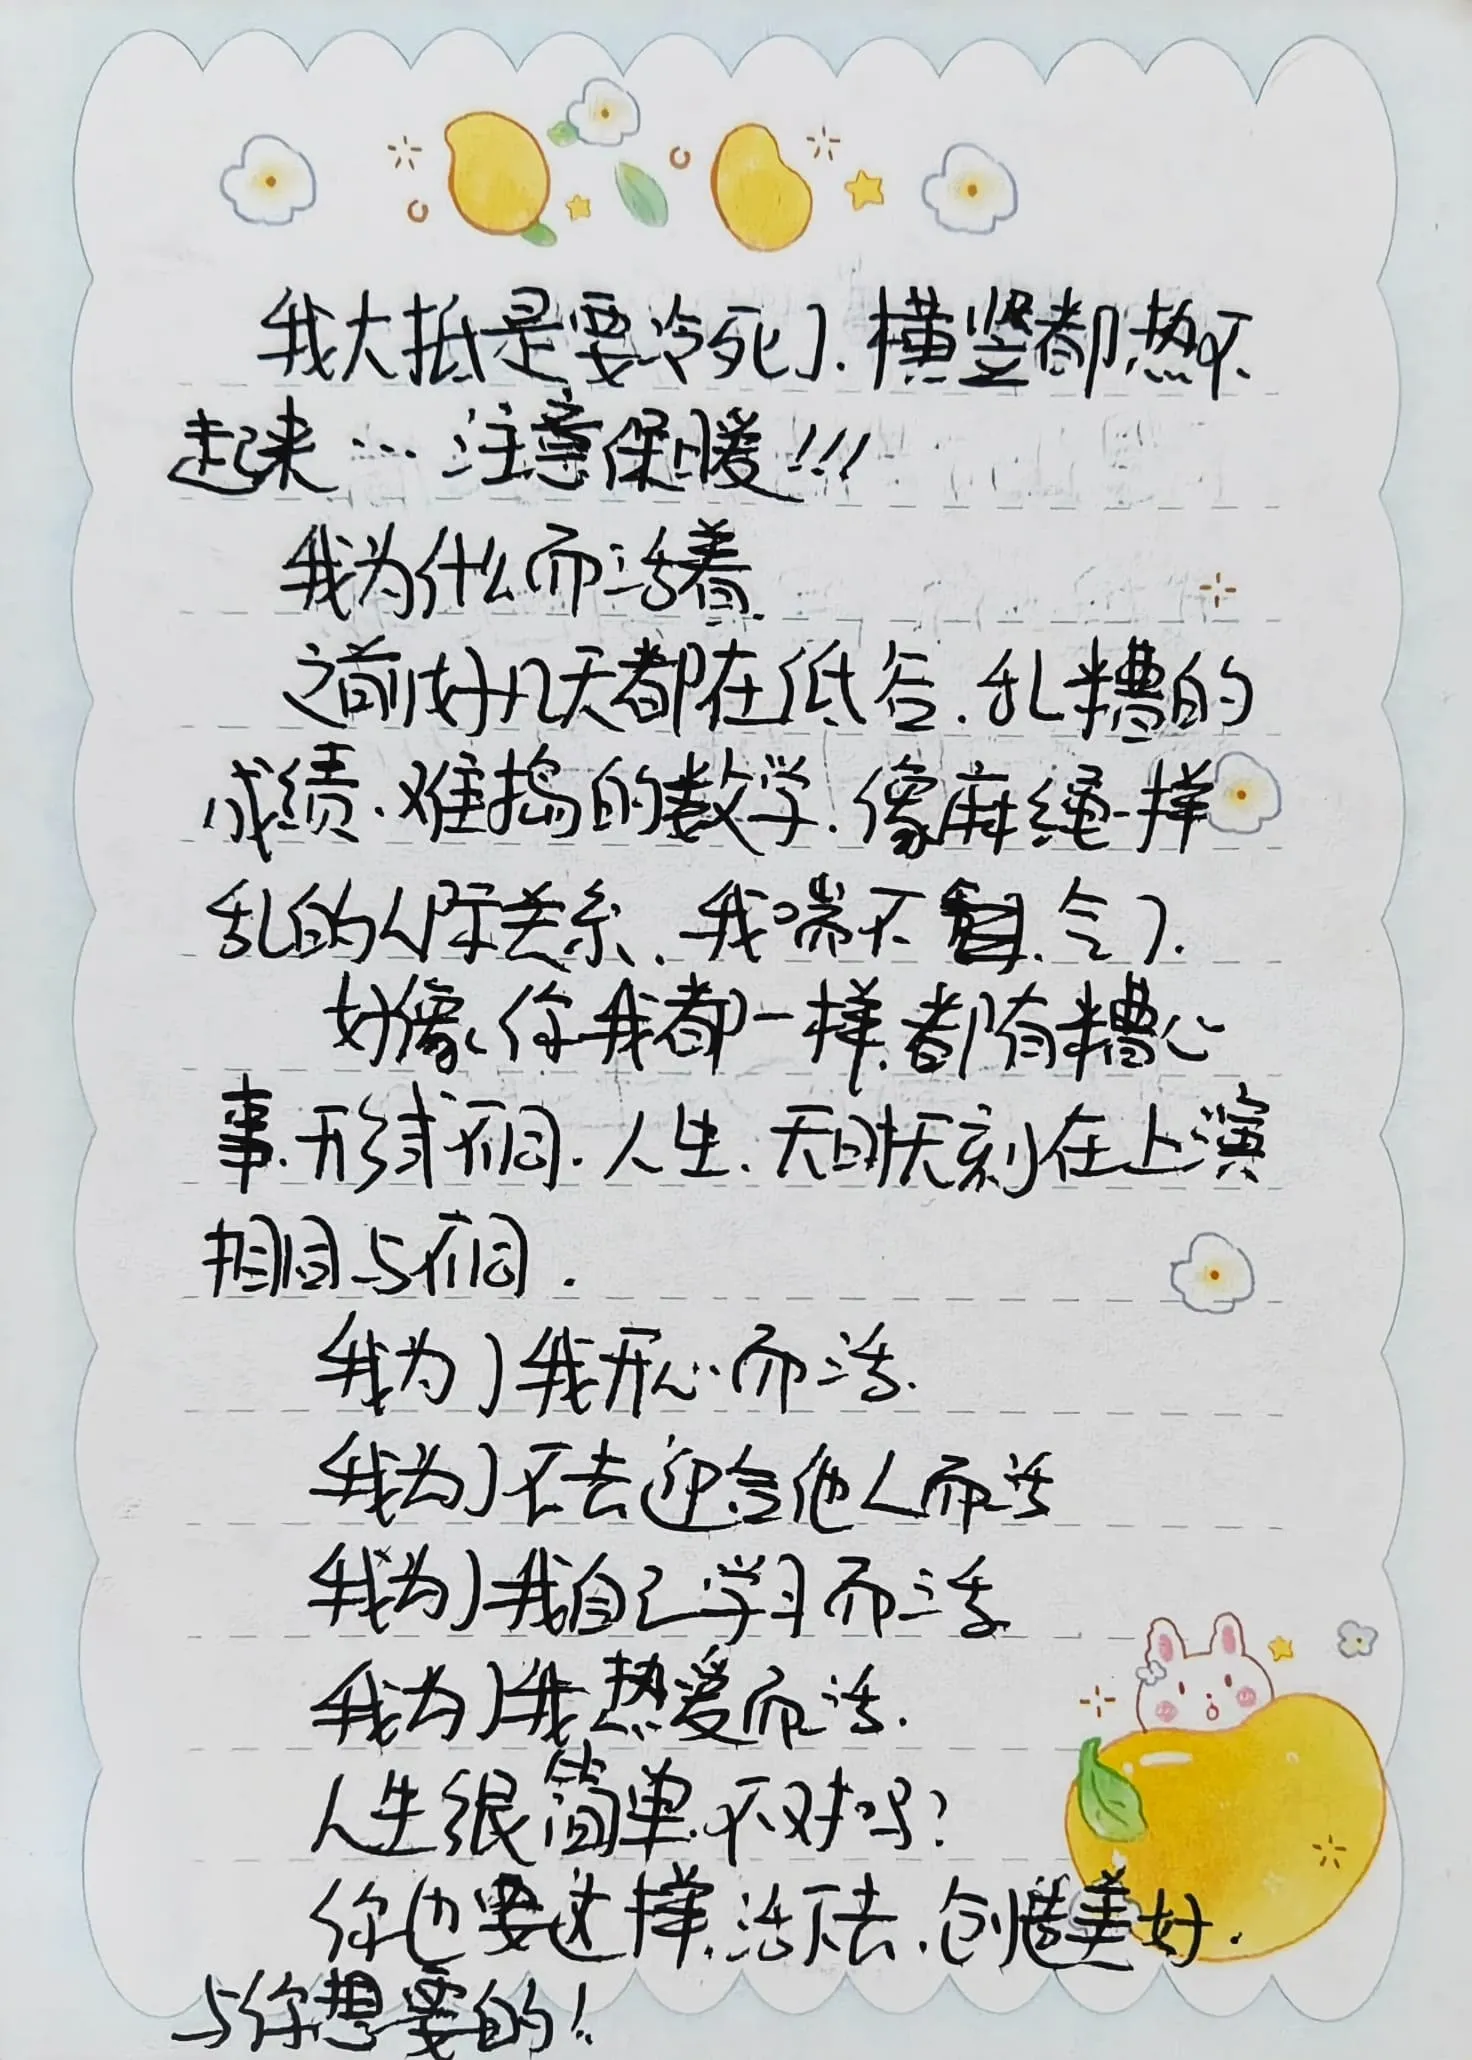 我大抵是要冷死了.横竖都热不
起来…注意保暖!!!
我为什么而活着
之前好几天都在低谷.乱糟的
成绩.难搞的数学.像麻绳一样
乱的人际关系.我喘不气了.
好像,你我都一样.都有糟心
事.形式不同.人生.无时无刻在上演
相同与不同.
我为了我开心而活.
我为了不去迎合他人而活
我为了我自己学习而活
我为了我热爱而活.
人生很简单.不对吗?
你也要这样.活下去.创造美好.
与你想要的!